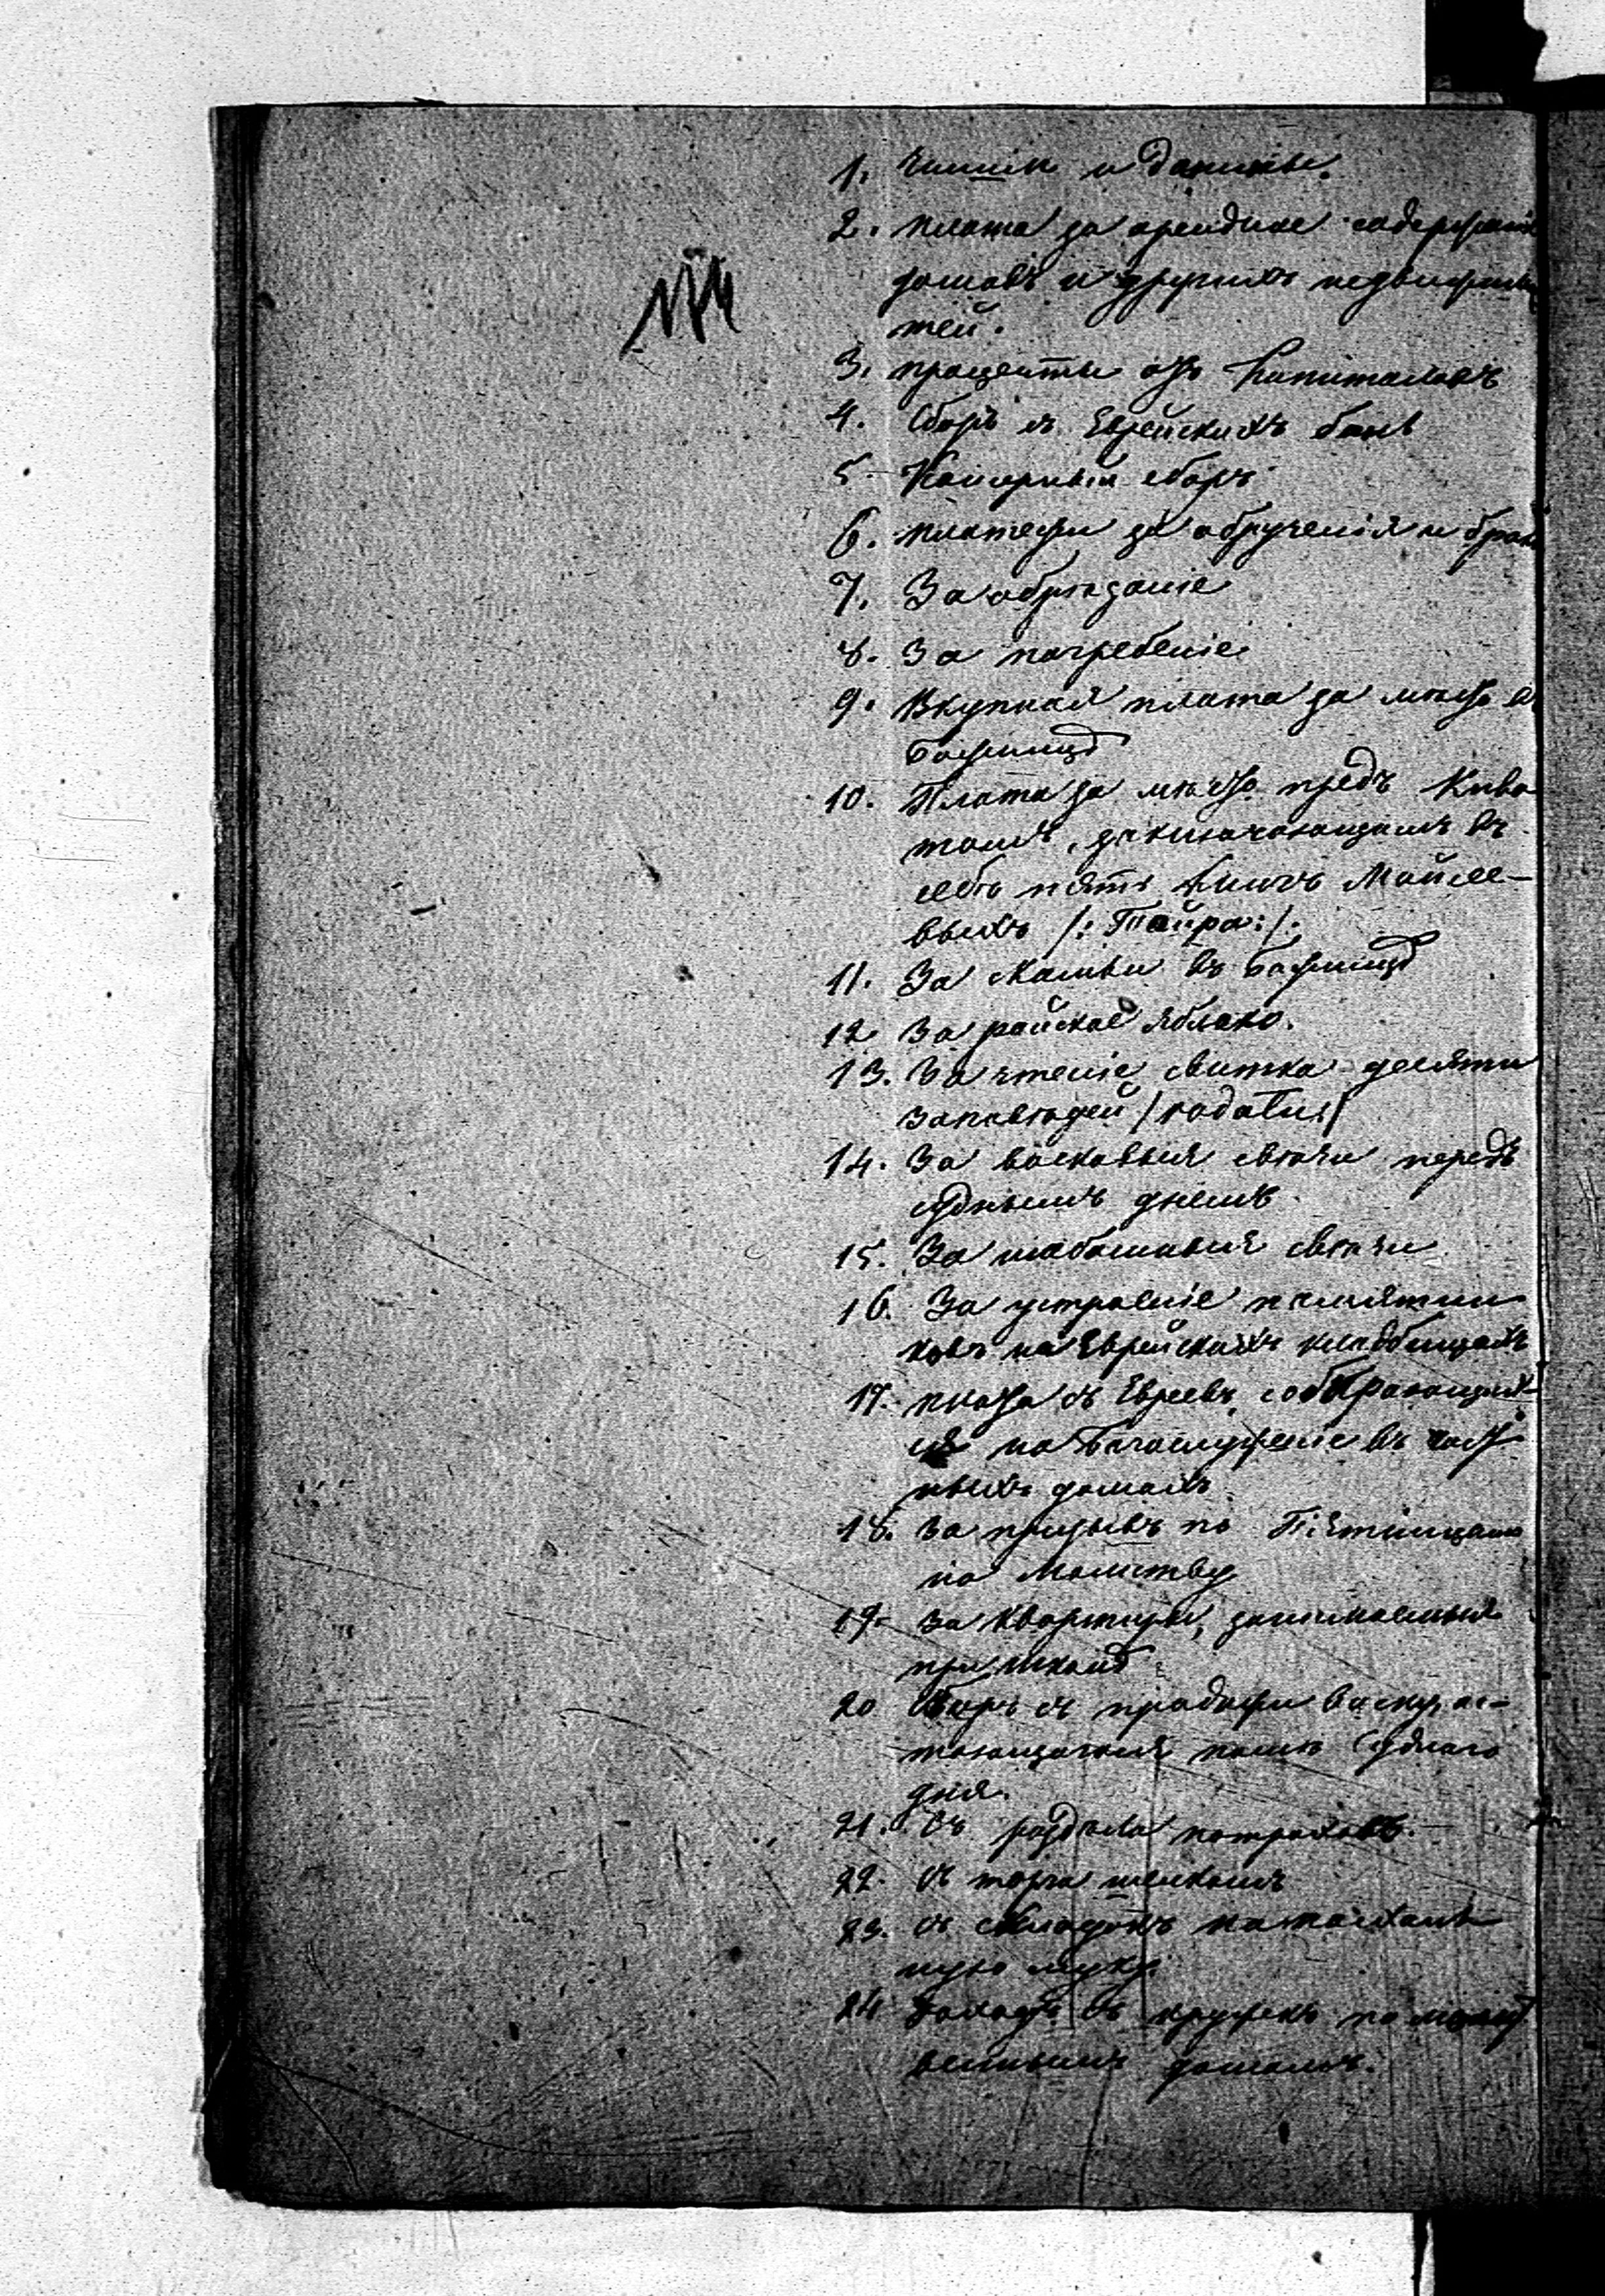 1. Чинши и данины.
2. плата за арендное содержаніе
домовъ и другихъ недвижимос
тей.
3. проценты отъ Капиталовъ
4. Сборъ съ Еврейскихъ бань
5. Кошерный сборъ
6. платежи за обрученія и браки
7. За обрѣзаніе
8. За погребеніе
9. Вкупная плата за мѣсто въ
Божницѣ
10. Плата за мѣсто предъ Киво
томъ, заключающимъ въ
себѣ пять Книгъ Мойсее-
выхъ /: Тойра :/.
11. За скамьи въ Божницѣ
12 За райское яблоко.
13. За чтеніе свитка десяти
заповѣдей /rodałы/
14. За восковыя свѣчи передъ
суднымъ днемъ
15. За шабашныя свѣчи
16. За устроеніе памятни
ковъ на Еврейскихъ кладбищахъ
17. плата съ Евреевъ, собирающих
ся на Богослуженіе въ част
ныхъ домахъ
18. За призывъ по Пятницамъ
на Молитву
19. За квартиры, занимаемыя
при школѣ
20 Сборъ съ продажи воску, ос-
тающагося послѣ Суднаго
дня.
21. Съ раздѣла
22. Съ торга
23. Съ складокъ на
ную муку
24 Доходъ съ кружекъ по молит
веннымъ домамъ.